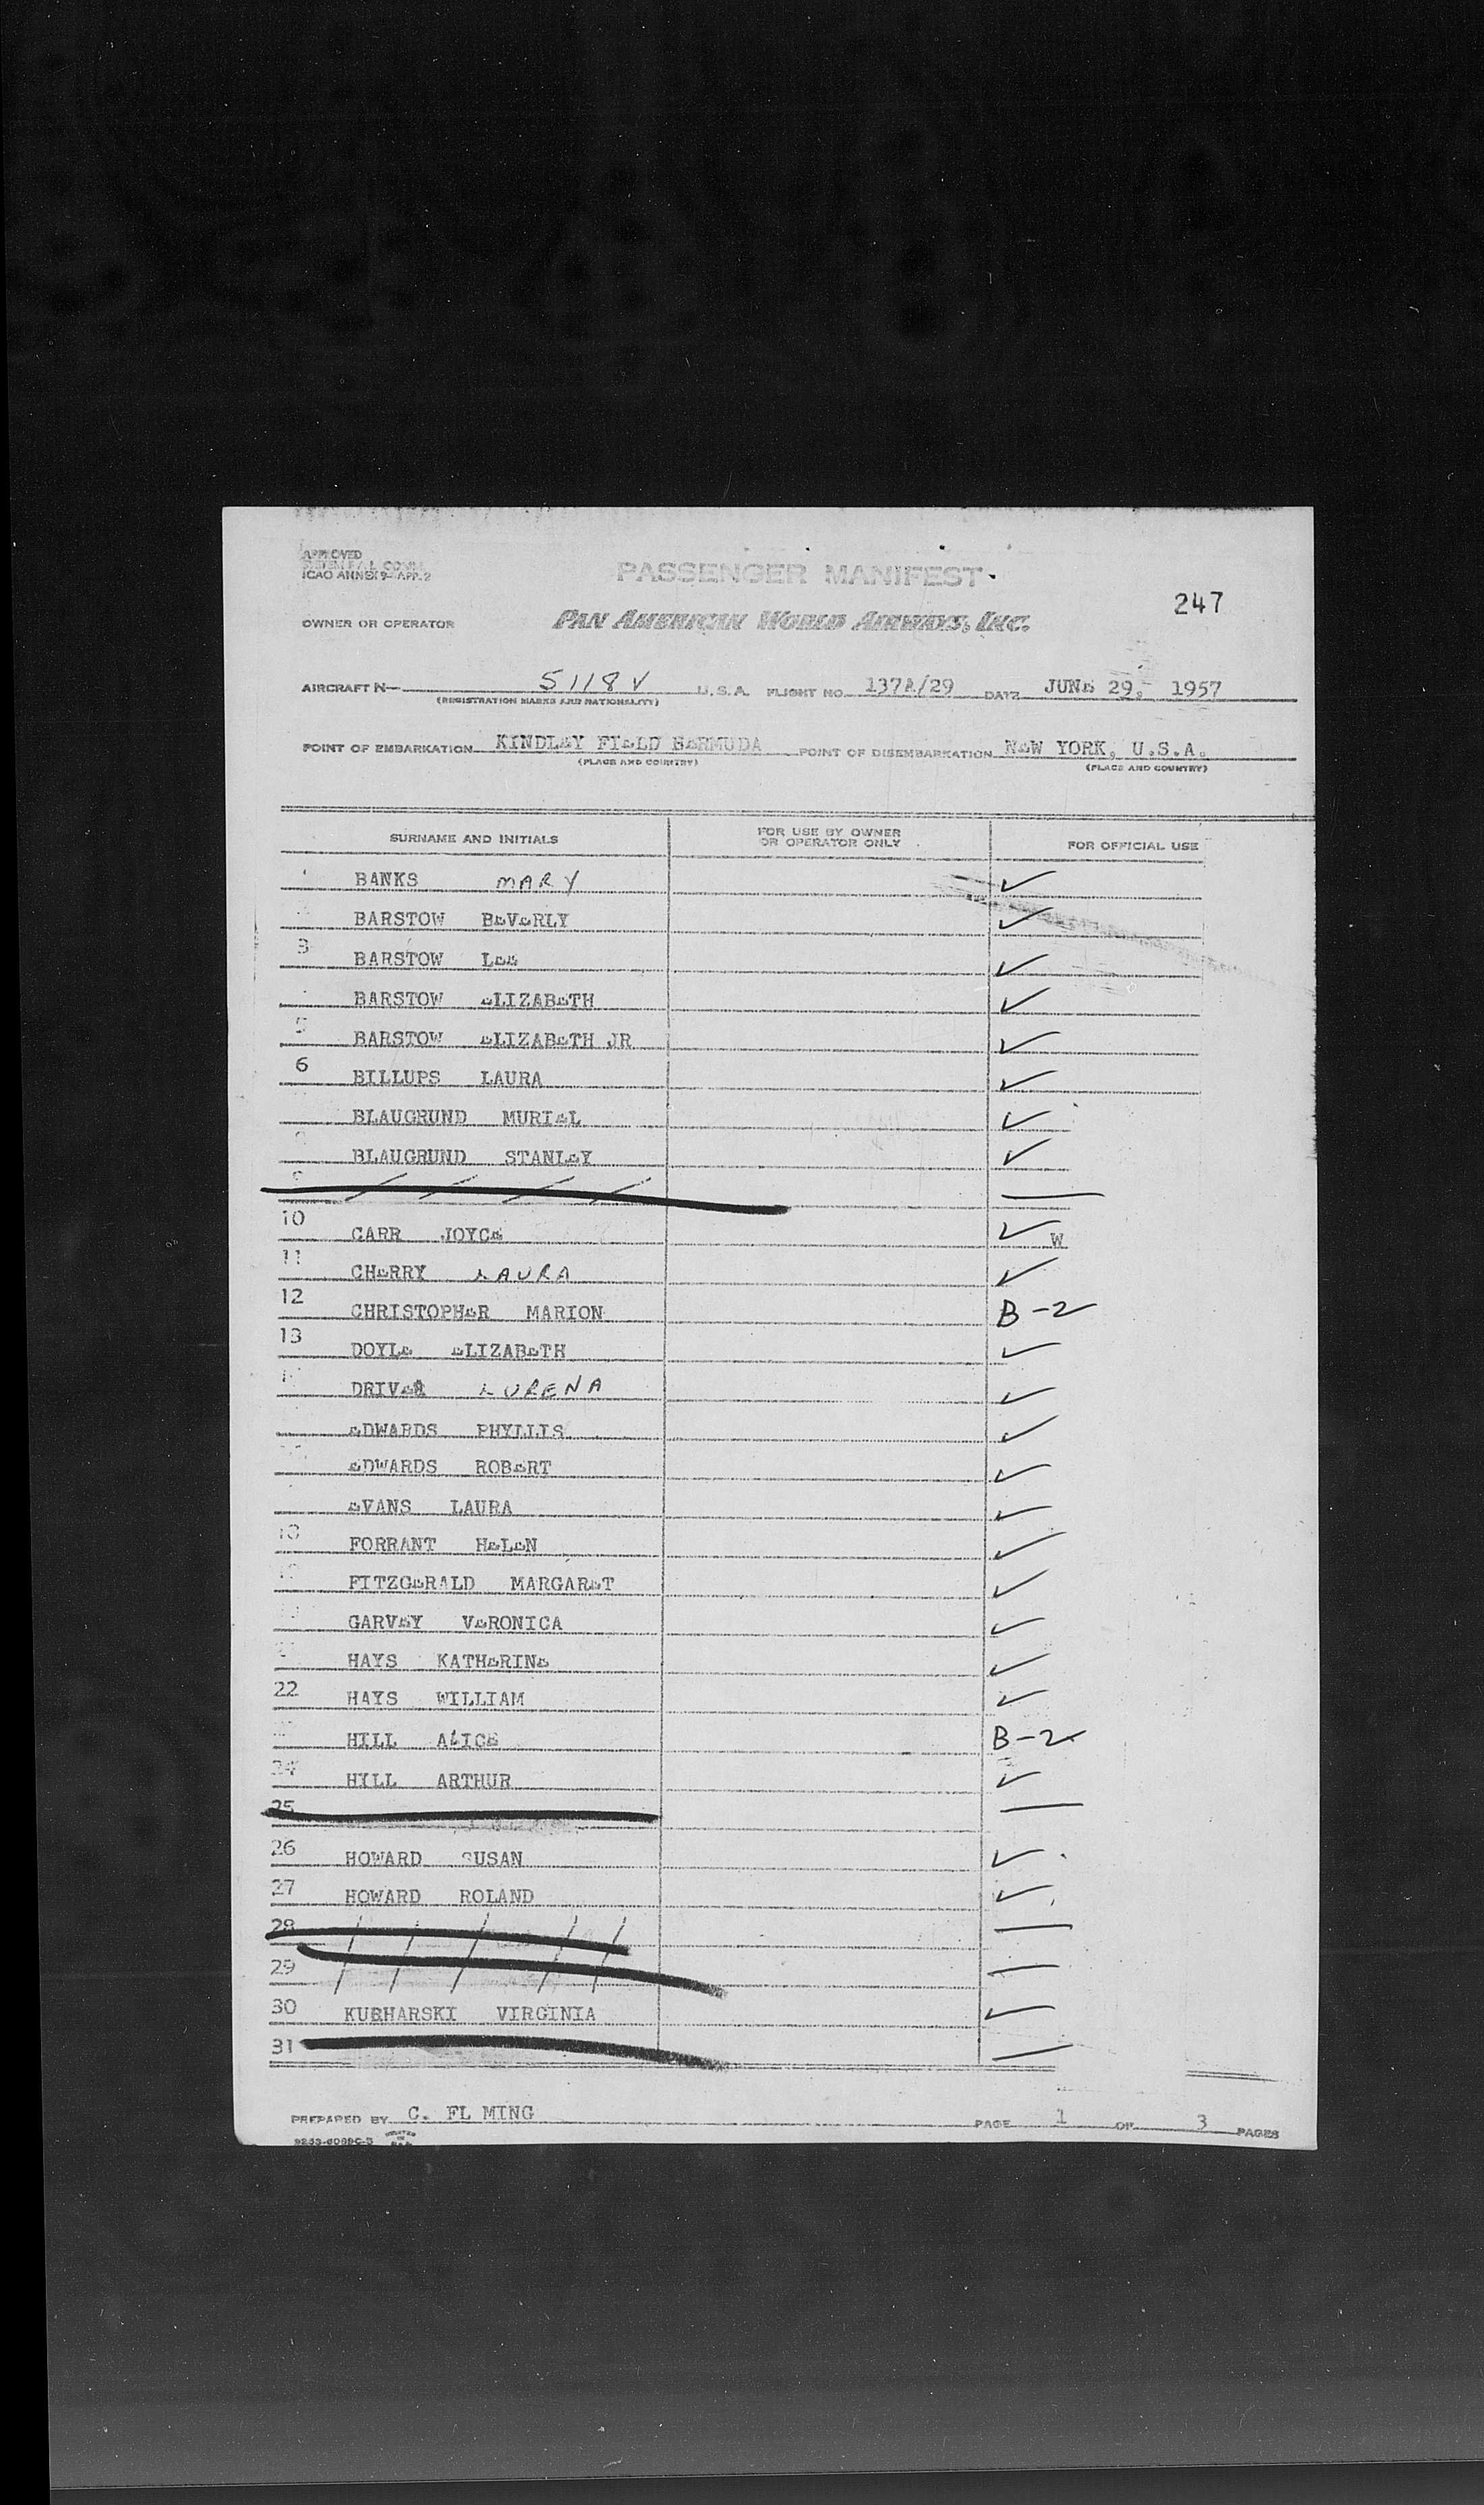 APPROVED
SYSTEM F.A.L. COMM.
ICAO ANNEX 9-APP. 2
PASSENGER MANIFEST
247
OWNER OR OPERATOR PAN AMERICAN WORLD AIRWAYS, INC.
AIRCRAFT N- 5118V U.S.A. FLIGHT NO. 137A/29 DATE JUNE 29, 1957
(REGISTRATION MARKS AND NATIONALITY)
POINT OF EMBARKATION KINDLEY FIELD BERMUDA POINT OF DISEMBARKATION NEW YORK, U.S.A.
(PLACE AND COUNTRY) (PLACE AND COUNTRY)
SURNAME AND INITIALS FOR USE BY OWNER OR OPERATOR ONLY FOR OFFICIAL USE
BANKS MARY ✓
BARSTOW BEVERLY ✓
3 BARSTOW LEE ✓
BARSTOW ELIZABETH ✓
5 BARSTOW ELIZABETH JR ✓
6 BILLUPS LAURA ✓
BLAUGRUND MURIEL ✓
BLAUGRUND STANLEY ✓
9 —
10 CARR JOYCE ✓ W
11 CHERRY LAURA ✓
12 CHRISTOPHER MARION B-2
13 DOYLE ELIZABETH ✓
DRIVER LURENA ✓
EDWARDS PHYLLIS ✓
EDWARDS ROBERT ✓
EVANS LAURA ✓
18 FORRANT HELEN ✓
FITZGERALD MARGARET ✓
GARVEY VERONICA ✓
HAYS KATHERINE ✓
22 HAYS WILLIAM ✓
HILL ALICE B-2
24 HILL ARTHUR ✓
25 —
26 HOWARD SUSAN ✓
27 HOWARD ROLAND ✓
28 —
29 —
30 KUBHARSKI VIRGINIA ✓
31 —
PREPARED BY C. FL MING PAGE 1 OF 3 PAGES